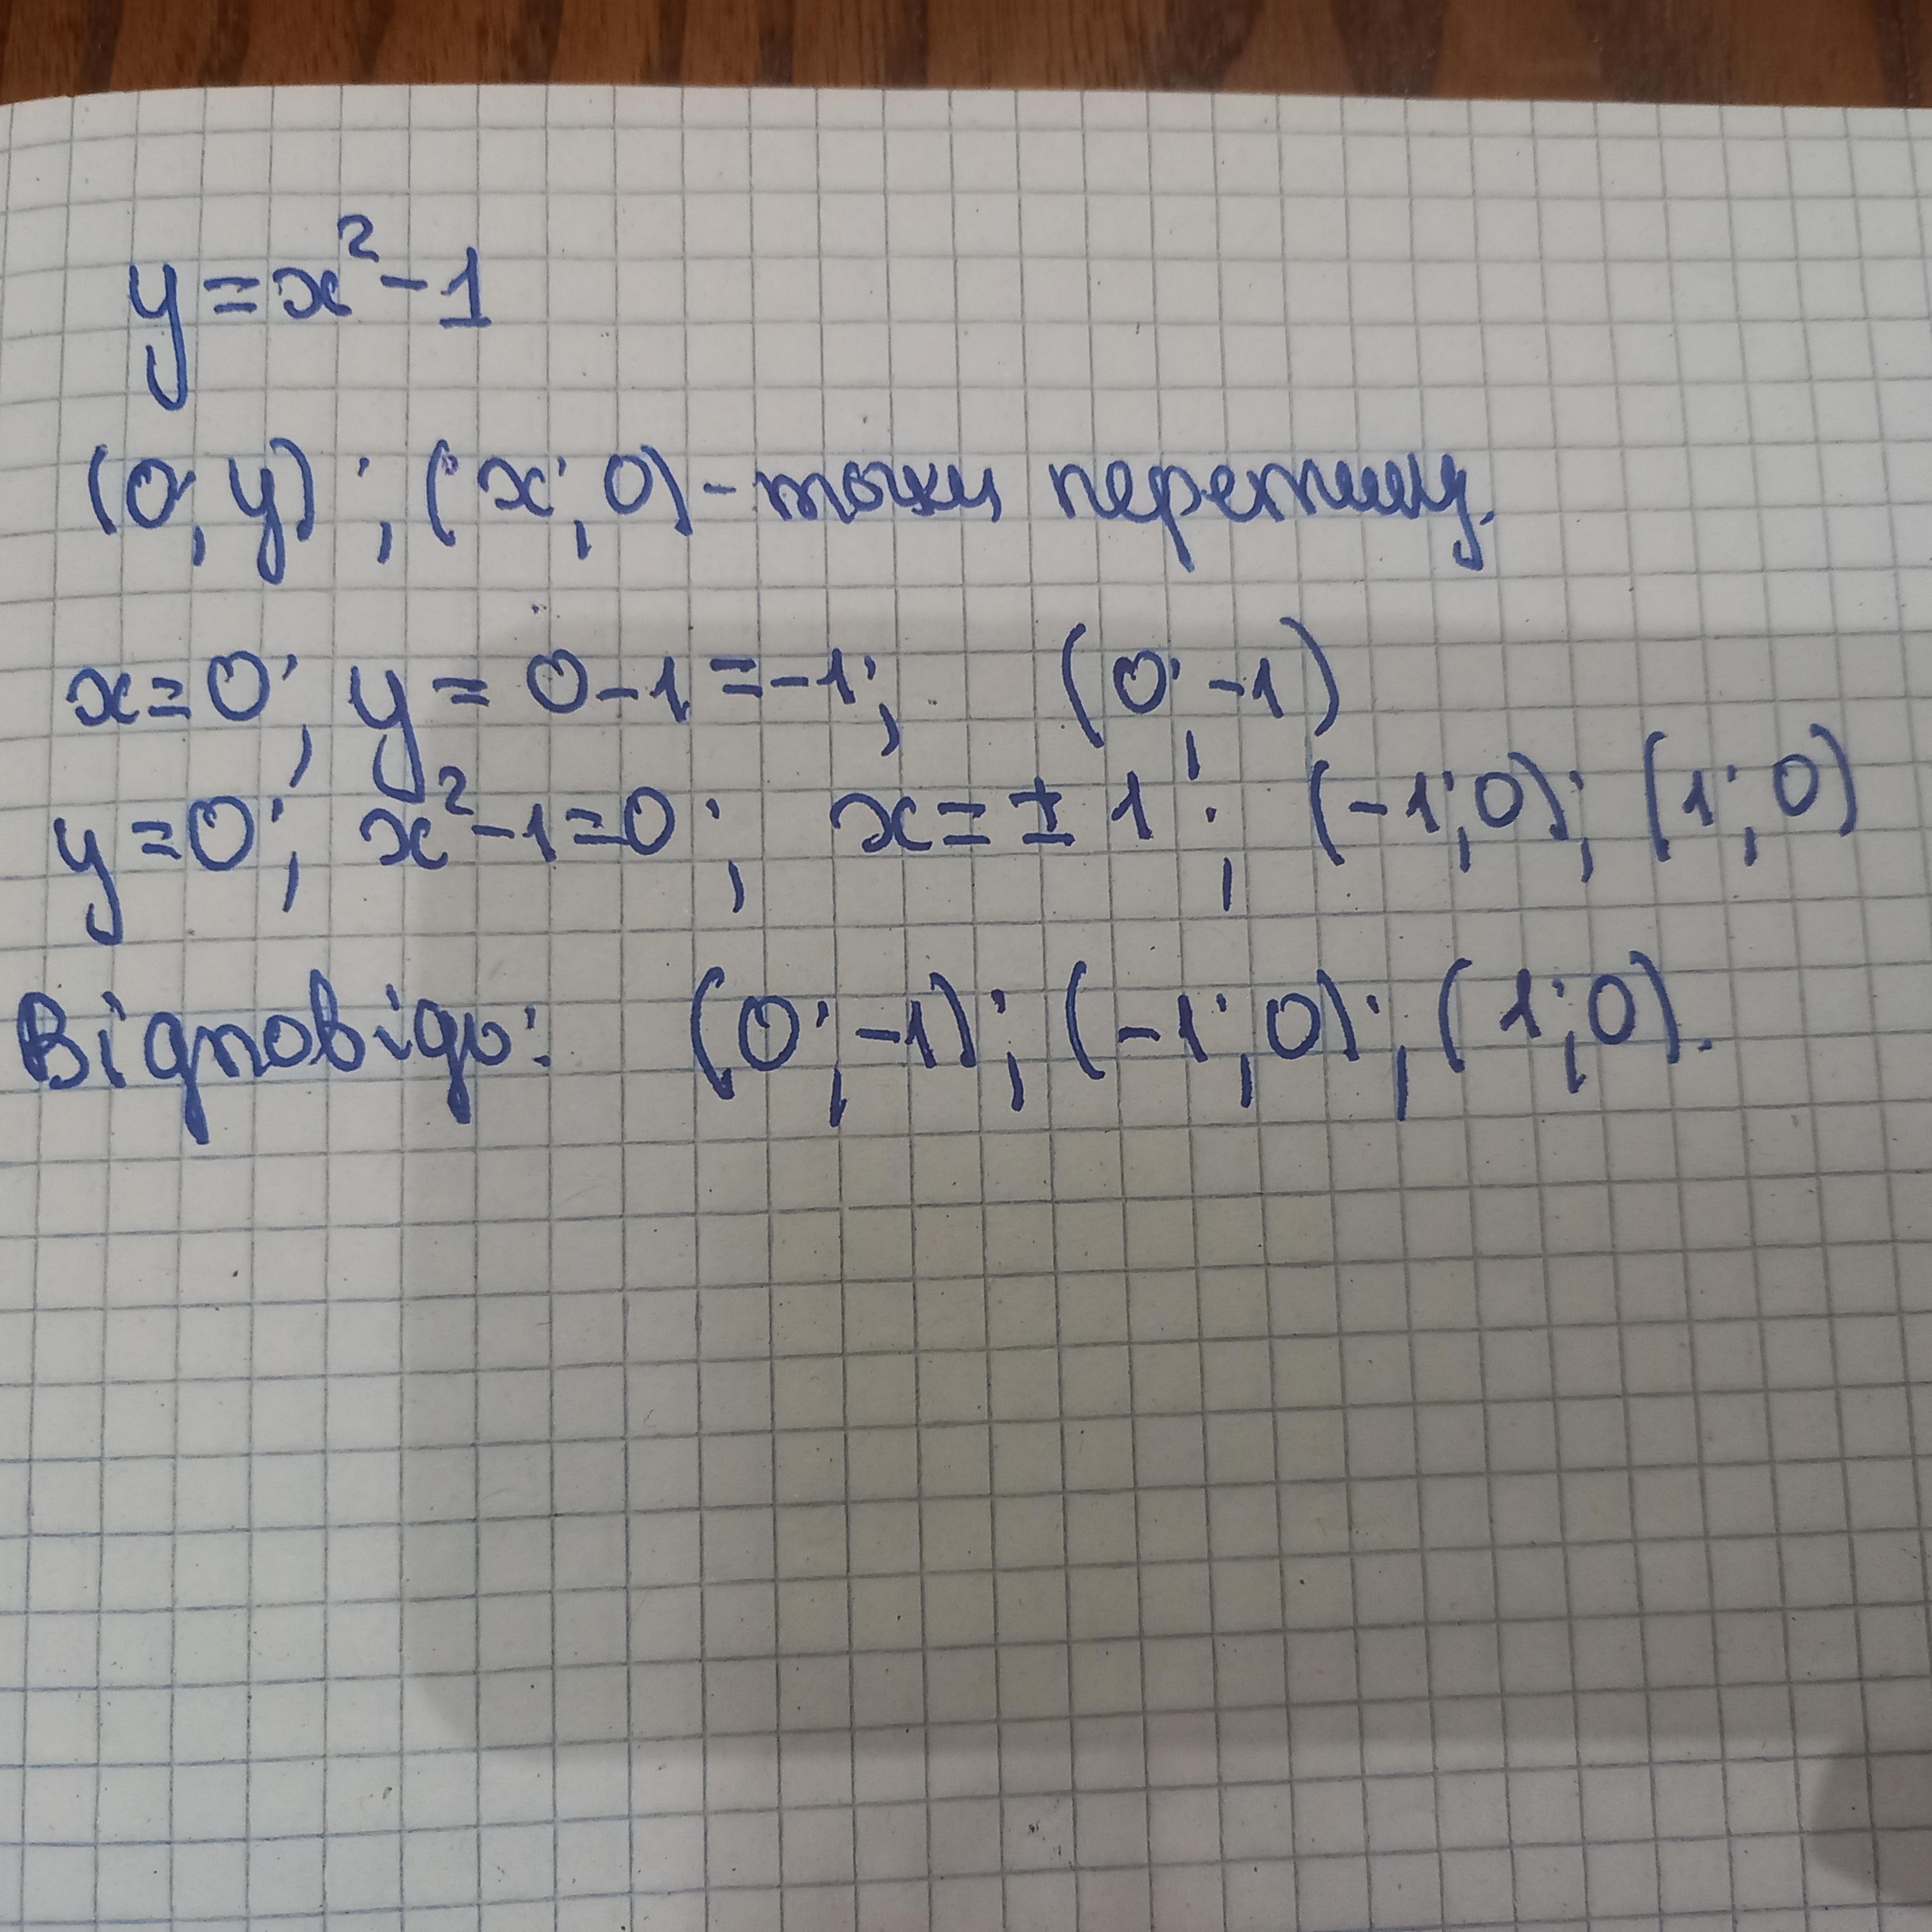 y = x² - 1
(0; y); (x; 0) - точки перетину.
x = 0; y = 0 - 1 = -1; (0; -1)
y = 0; x² - 1 = 0; x = ± 1; (-1; 0); (1; 0)
Відповідь: (0; -1); (-1; 0); (1; 0).